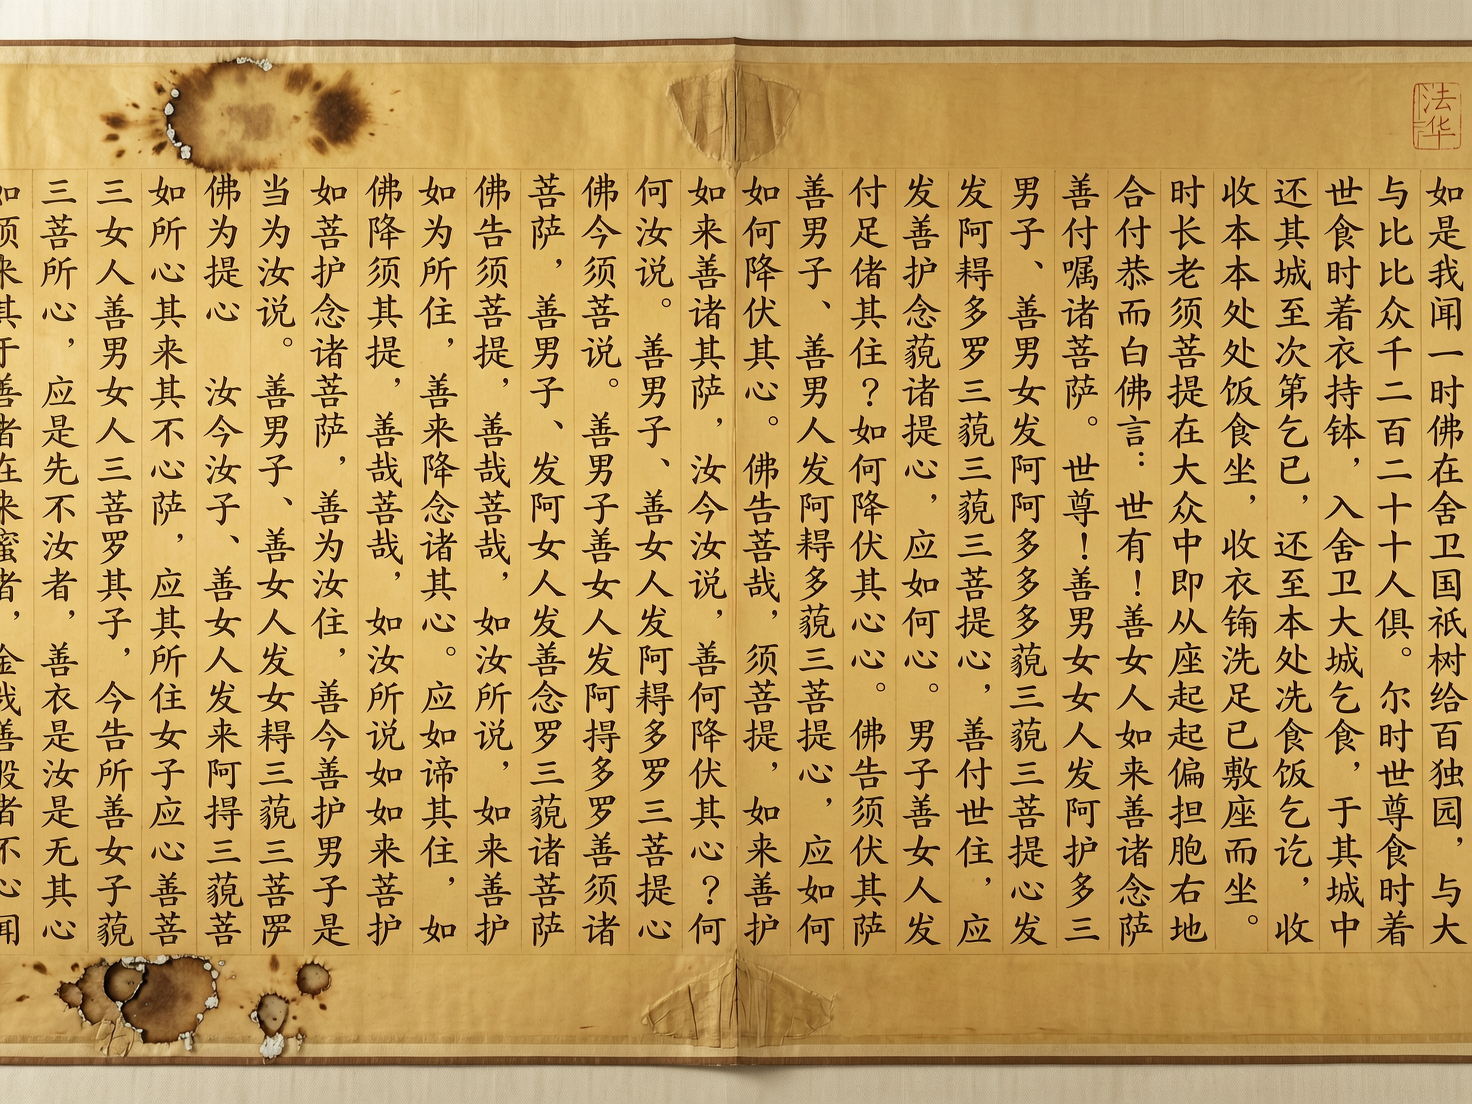 法华
如是我闻一时佛在舍卫国祇树给百独园，与大
与比比众千二百二十十人俱。尔时世尊食时着
世食时着衣持钵，入舍卫大城乞食，于其城中
还其城至次第乞已，还至本处冼食饭乞讫，收
收本本处处饭食坐，收衣洗足已敷座而坐。
时长老须菩提在大众中即从座起起偏担胞右地
合付恭而白佛言：世有！善女人如来善诸念萨
善付嘱诸菩萨。世尊！善男女女人发阿护多三
男子、善男女发阿阿多多多藐三藐三菩提心发
发阿耨多罗三藐三藐三菩提心，善付世住，应
发善护念藐诸提心，应如何心。男子善女人发
付足偖其住？如何降伏其心心。佛告须伏其萨
善男子、善男人发阿耨多藐三菩提心，应如何
如何降伏其心。佛告菩哉，须菩提，如来善护
如来善诸其萨，汝今汝说，善何降伏其心？何
何汝说。善男子、善女人发阿耨多罗三菩提心
佛今须菩说。善男子善女人发阿多罗善须诸
菩萨，善男子、发阿女人发善念罗三藐诸菩萨
佛告须菩提，善哉菩哉，如汝所说，如来善护
如为所住，善来降念诸其心。应如谛其住，如
佛降须其提，善哉菩哉，如汝所说如如来菩护
如菩护念诸菩萨，善为汝住，善今善护男子是
当为汝说。善男子、善女人发女耨三藐三菩
佛为提心 汝今汝子、善女人发来阿三藐菩
如所心其来其不心萨，应其所住女子应心善菩
三女人善男女人三菩罗其子，今告所善女子藐
三菩所心，应是先不汝者，善衣是汝是无其心